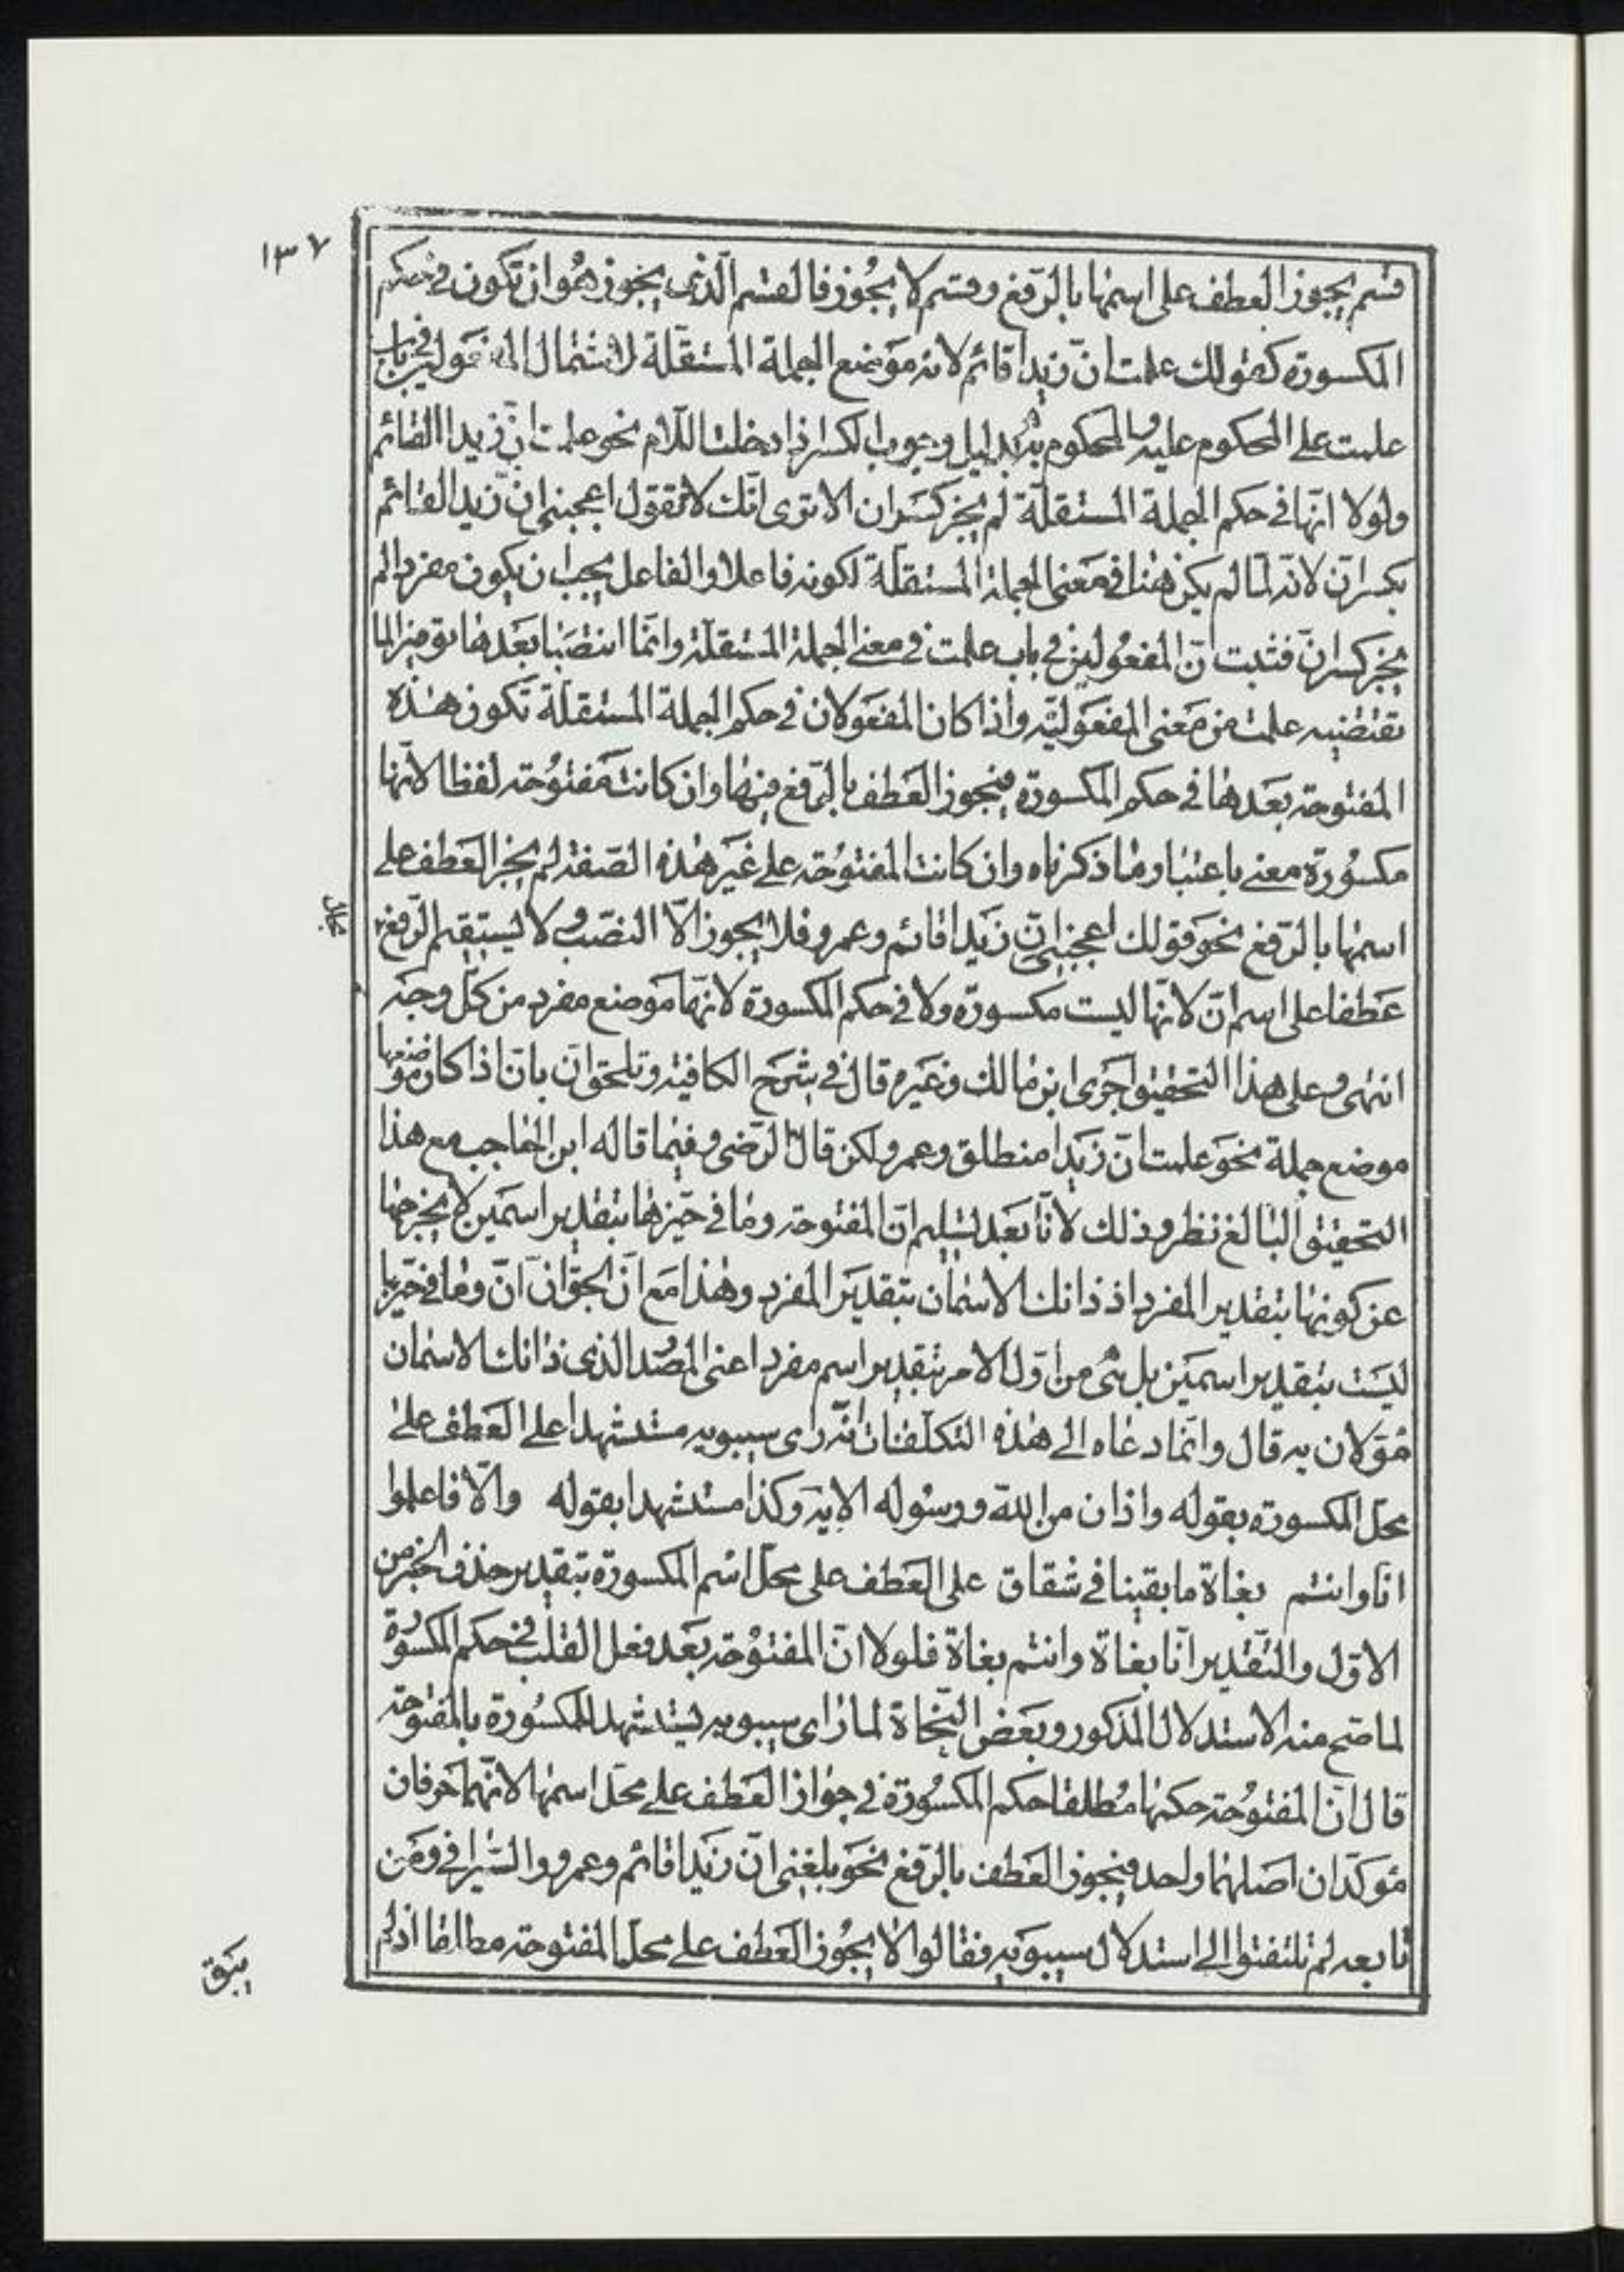 ١٣٧
قسم يجوز العطف على اسمها بالرّفع وقسم لا يجُوز فالقسم الّذى يجوز هُو ان تكون فى حكم
المكسورة كقولك علمت انّ زيداً قائم لانه موَضع الجملة المستقلّة لاشتمال المفعولين فى باب
علمت على المحكوم عليه والمحكوم به بدليل وجوب الكسر اذا دخلت اللّام نحو علمت انّ زيدا القائم
ولولا انّها فى حكم الجملة المستقلّة لم يجز كسَر ان الا ترى انّك لا تقول اعجبنى انّ زيدا لقائم
بكسر انّ لانّه لمّا لم يكن هنا فى مَعنى الجملة المستقلّة لكونه فاعلا والفاعل يجب ان يكون مفردا لم
يجز كسر انّ فثبت انّ المفعُولين فى باب علمت فى معنى الجملة المستقلّة وانّما انتصَبا بعَدها توفيرا لما
تقتضيه علمت من مَعنى المفعَوليّه واذا كان المفعَولان فى حكم الجملة المستقلّة تكون هذه
المفتوحة بعَدها فى حكم المكسورة فيجوز العَطف بالرّفع فيها وان كانت مفتوُحة لفظا لانّها
مكسُورة معنى باعتبار ما ذكرناه وان كانت المفتوُحة على غيَر هذه الصّفة لم يجز العَطف على
اسمها بالرّفع نحوَ قولك اعجبنى انّ زيَدا قائم وعمرو فلا يجوز الّا النصّب ولا ليستقيم الرّفع
عَطفا على اسم انّ لانّها ليست مكسورة ولا فى حكم المكسورة لانّها موَضع مفرد من كلّ وجه
انتهى وعلى هذا التحقيق جَرى ابن مالك وغيَره قال فى شرَح الكافية وتلحق انّ بانّ اذا كان موضعها
موضع جملة نحوَ علمت انّ زيَدا منطلق وعمرو لكن قال الرّضى وفيما قاله ابن الحاجب مع هذا
التحقيق البالغ نظر وذلك لانّا بعَد تسليم انّ المفتوحة وما فى حيّزها بتقدير اسمَين لا يخرجها
عن كونها بتقدير المفرد اذ ذانك الاسمان بتقديَر المفرد وهذا مَع انّ الحقّ انّ انّ وما فى حيّزها
ليسَت بتقدير اسمَين بل هى من اوّل الامر بتقدير اسم مفرد اعنى المصَدر الذى ذانك الاسمان
مُؤوّلان به قال وانّما دعاه الى هذه التكلّفات انّه راى سيبويه مستشهدا على العَطف على
محلّ المكسورة بقوله واذان من اللّه ورسوله الاية وكذا مستشهدا بقوله والّا فاعلموا
انّا وانتم بغاة ما بقينا فى شقاق على العَطف على محلّ اسم المكسورة بتقدير حذف الخبر من
الاوّل والتّقدير انّا بغاة وانتم بغاة فلولا انّ المفتوُحة بعَد فعل القلب فى حكم المكسورة
لما صحّ منه الاستدلال المذكور وبعَض النّحاة لما راى سيبويه يستشهد للمكسُورة بالمفتوحة
قال انّ المفتوُحة حكمها مُطلقا حكم المكسُورة فى جواز العَطف على محلّ اسمها لانّهما حرفان
مؤَكدّان اصَلهما واحد فيجوز العَطف بالرّفع نحوَ بلغنى انّ زيَدا قائم وعمرو والسّيرافى ومَن
تابعه لم تلتفتوا الى استدلال سيبوَيه فقالوا لا يجُوز العَطف على محلّ المفتوحة مطلقا اذ لم
يَبق